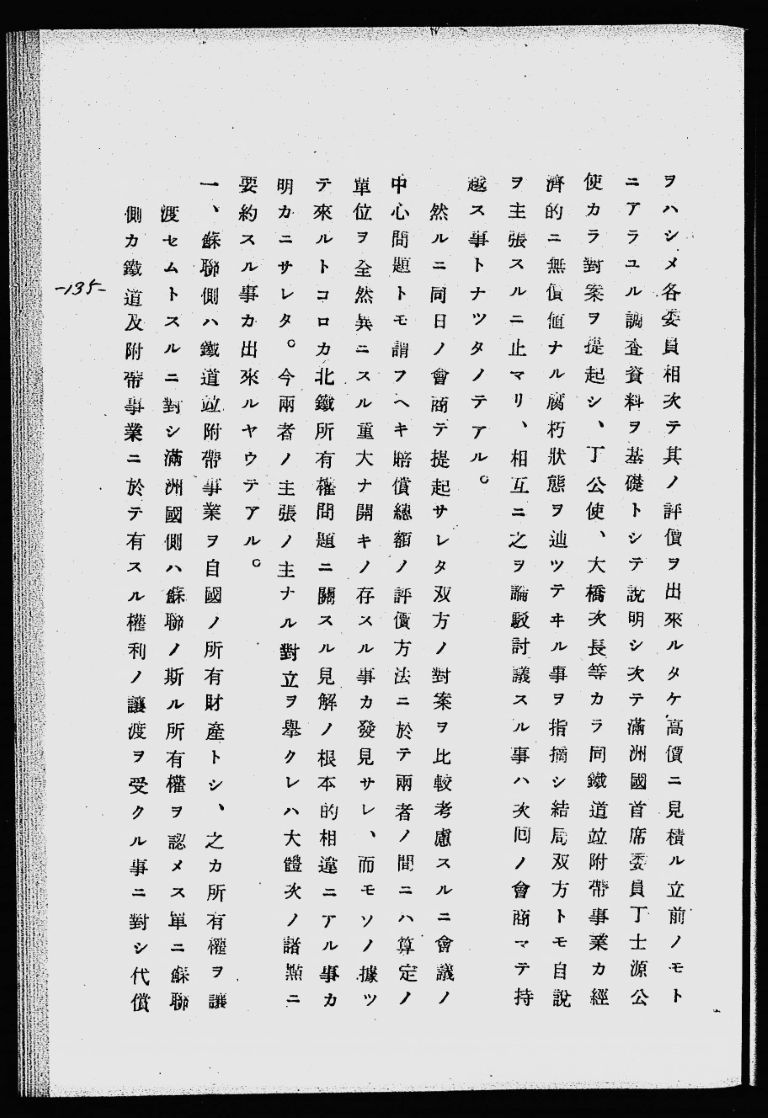 ヲハシメ各委員相次テ其ノ評價ヲ出來ルタケ高價ニ見積ル立前ノモト
ニアラユル調査資料ヲ基礎トシテ說明シ次テ滿洲國首席委員丁士源公
使カラ對案ヲ提起シ、丁公使、大橋次長等カラ同鐵道竝附帶事業カ經
濟的ニ無價値ナル腐朽狀態ヲ辿ツテヰル事ヲ指摘シ結局双方トモ自說
ヲ主張スルニ止マリ、相互ニ之ヲ論駁討議スル事ハ次囘ノ會商マテ持
越ス事トナツタノテアル。
然ルニ同日ノ會商テ提起サレタ双方ノ對案ヲ比較考慮スルニ會議ノ
中心問題トモ謂フヘキ賠償總額ノ評價方法ニ於テ兩者ノ間ニハ算定ノ
單位ヲ全然異ニスル重大ナ開キノ存スル事カ發見サレ、而モソノ據ツ
テ來ルトコロカ北鐵所有權問題ニ關スル見解ノ根本的相違ニアル事カ
明カニサレタ。今兩者ノ主張ノ主ナル對立ヲ擧クレハ大體次ノ諸點ニ
要約スル事カ出來ルヤウテアル。
一、蘇聯側ハ鐵道竝附帶事業ヲ自國ノ所有財產トシ、之カ所有權ヲ讓
渡セムトスルニ對シ滿洲國側ハ蘇聯ノ斯ル所有權ヲ認メス單ニ蘇聯
側カ鐵道及附帶事業ニ於テ有スル權利ノ讓渡ヲ受クル事ニ對シ代償
-135-